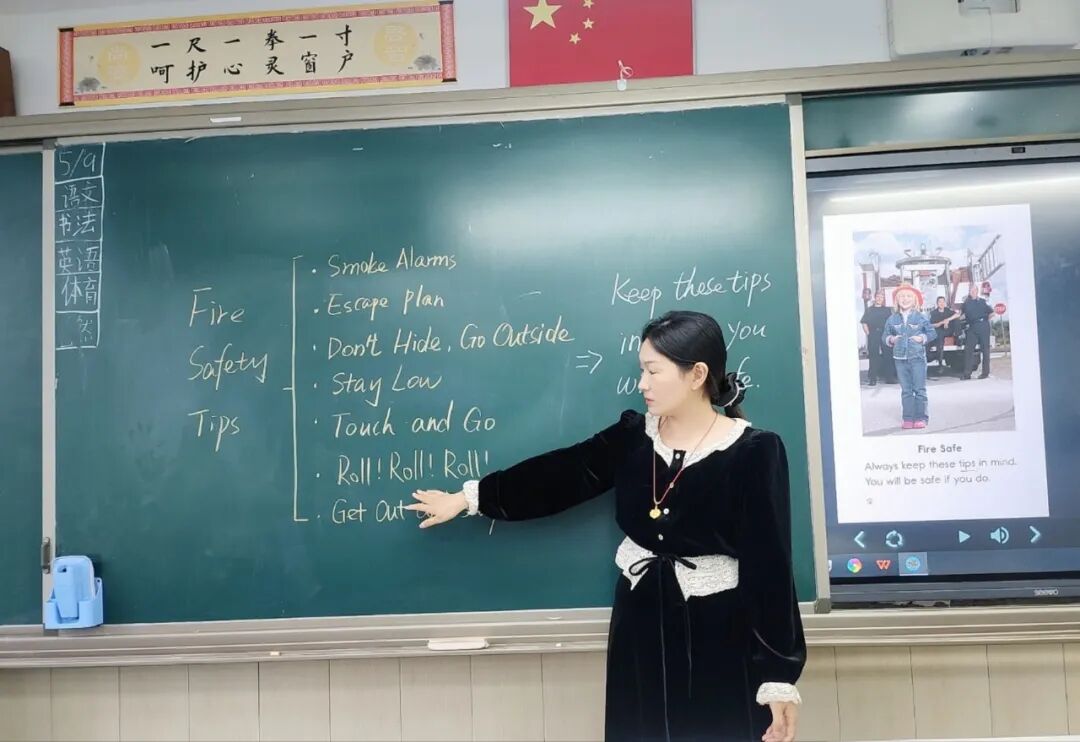 一尺一拳一寸
呵护心灵窗户
5/9
语文
书法
英语
体育
然
Fire
Safety
Tips
· Smoke Alarms
· Escape plan
· Don't Hide, Go Outside
· Stay Low
· Touch and Go
· Roll! Roll! Roll!
· Get Out
=> Keep these tips
in you
Fire Safe
Always keep these tips in mind.
You will be safe if you do.
seewo